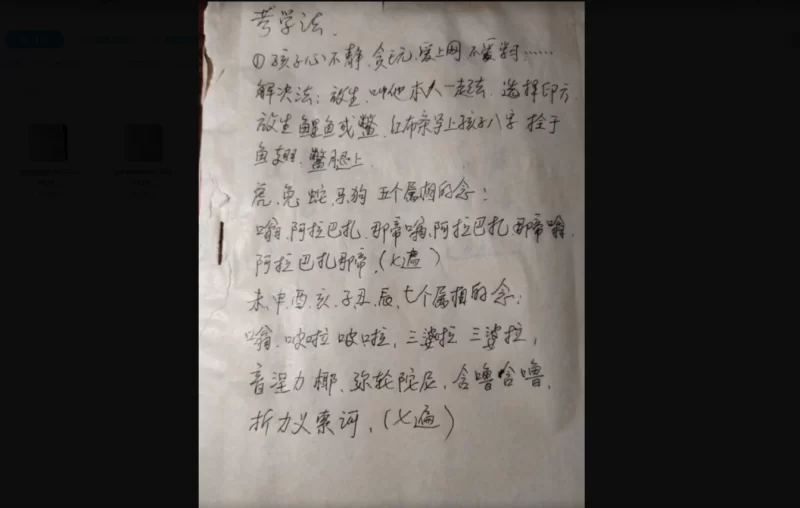 考学法.
①孩子心不静.贪玩.爱上网 不爱学习……
解决法：放生.叫他本人一起去.选择印方.
放生鲤鱼或鳖.红布条写上孩子八字 拴于
鱼翅.鳖腿上.
虎.兔.蛇.马.狗 五个属相的念：
嗡.阿拉巴扎.那帝嗡.阿拉巴扎 那帝嗡.
阿拉巴扎那帝.（七遍）
未.申.酉.亥.子.丑.辰.七个属相的念：
嗡.啵啦 啵啦，三婆啦 三婆拉，
音涅力椰、弥轮陀尼，含噜含噜，
折力义索诃，（七遍）